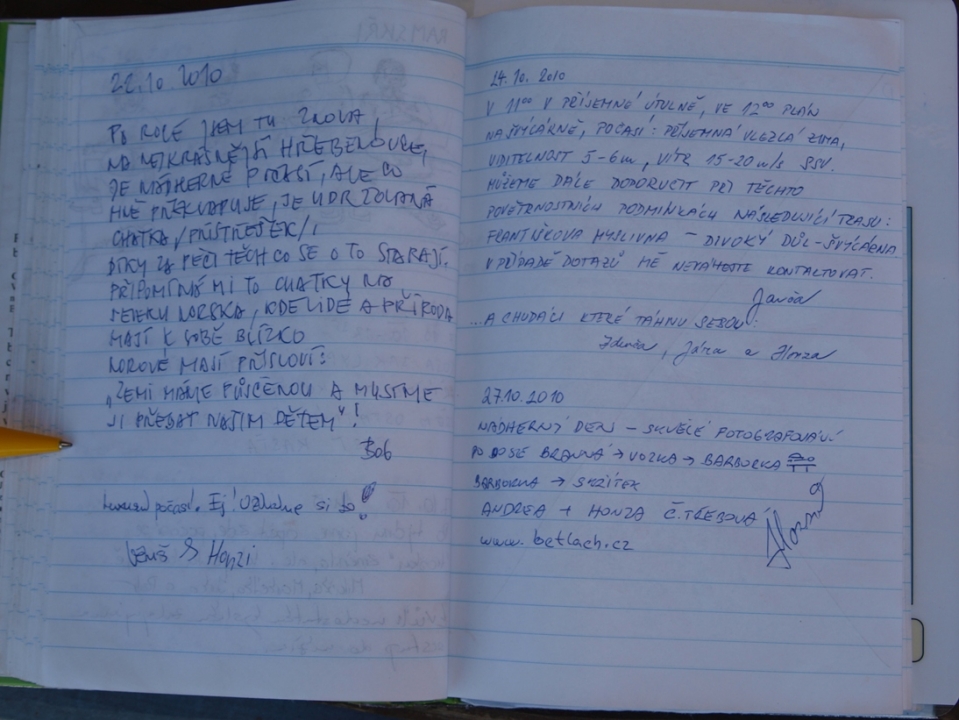 22.10 2010
PO ROCE JSEM TU ZNOVA,
NA NEJKRÁSNĚJŠÍ HŘEBENOVCE,
JE NÁDHERNÉ POČASÍ, ALE CO
MNĚ PŘEKVAPUJE, JE UDRŽOVANÁ
CHATKA /PŘÍSTŘEŠEK/!
DÍKY ZA PÉČI TĚCH CO SE O TO STARAJÍ.
PŘIPOMÍNÁ MI TO CHATKY NA
SEVERU NORSKA, KDE LIDÉ A PŘÍRODA
MAJÍ K SOBĚ BLÍZKO
NOROVÉ MAJÍ PŘÍSLOVÍ:
„ZEMI MÁME PŮJČENOU A MUSÍME
JI PŘEDAT NAŠIM DĚTEM“!
Bob
počasí. Ej! Užijme si to!
Honzi
24.10. 2010
V 11⁰⁰ V PŘÍJEMNÉ ÚTULNĚ, VE 12⁰⁰ PLÁN
NA ŠVÝCÁRNĚ, POČASÍ: PŘÍJEMNÁ VLEZLÁ ZIMA,
VIDITELNOST 5-6m, VÍTR 15-20 m/s SSV.
MŮŽEME DÁLE DOPORUČIT PŘI TĚCHTO
POVĚTRNOSTNÍCH PODMÍNKÁCH NÁSLEDUJÍCÍ TRASU:
FRANTIŠKOVA MYSLIVNA - DIVOKÝ DŮL - ŠVÝCÁRNA
V PŘÍPADĚ DOTAZŮ MĚ NEVÁHEJTE KONTAKTOVAT.
...A CHUDÁCI KTERÉ TÁHNU SEBOU:
Zdenda, Jára a Honza
27.10.2010
NÁDHERNÝ DEN - SKVĚLÉ FOTOGRAFOVÁNÍ
PO OSE BRANNÁ → VOZKA → BARBORKA
BARBORKA → SKŘÍTEK
ANDREA + HONZA Č.TŘEBOVÁ
www.betlach.cz